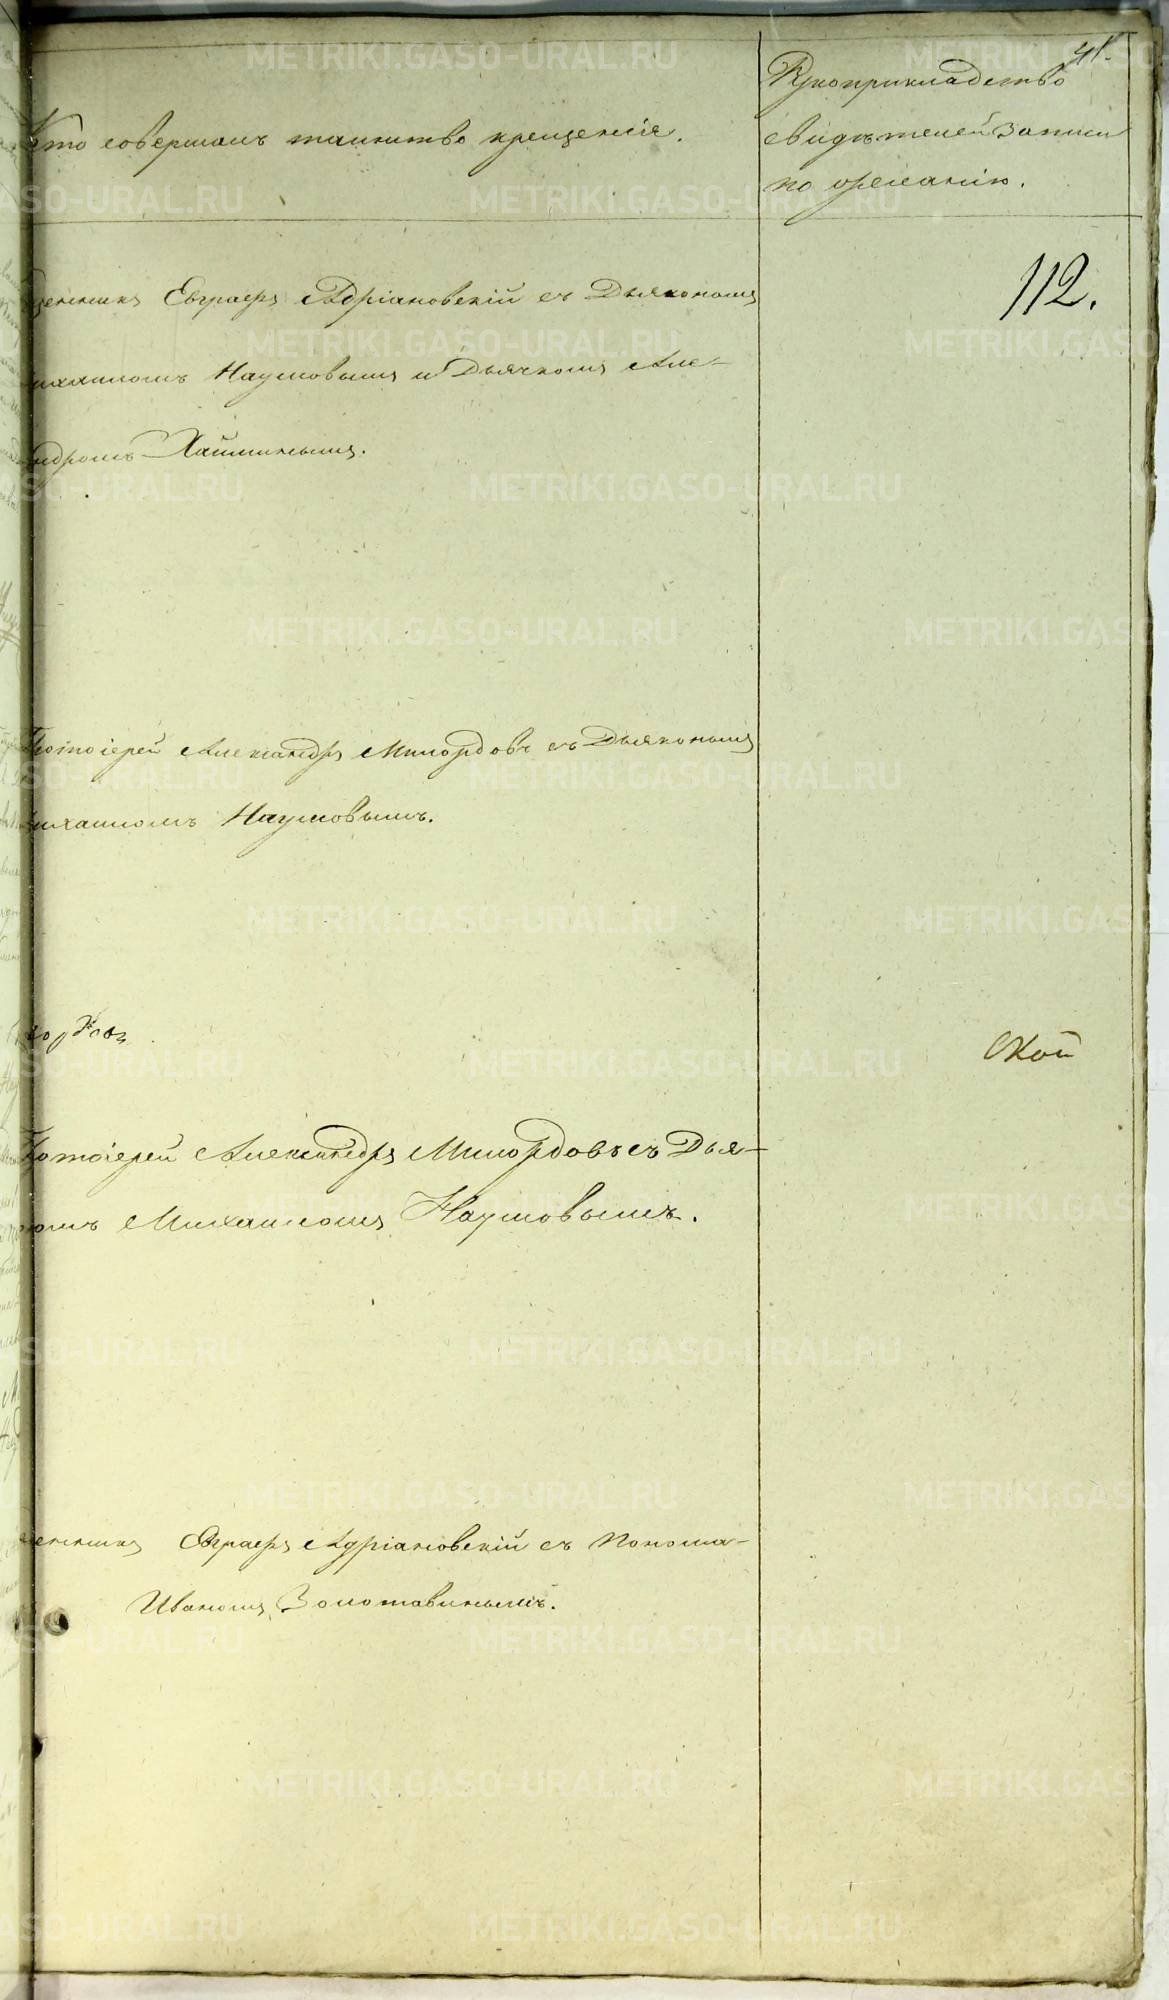 41.
Кто совершалъ таинство крещенія.
Рукоприкладство
свидѣтелей записи
по желанію.
112.
щенникъ Евграфъ Адріановскій съ Дьякономъ
ихаиломъ Наумовымъ и Дьячкомъ Але-
ндромъ Хайминымъ.
Протоіерей Александръ Милордовъ съ Дьякономъ
ихаиломъ Наумовымъ.
ской
Протоіерей Александръ Милордовъ съ Дья-
номъ Михаиломъ Наумовымъ.
щенникъ Евграфъ Адріановскій съ Понома-
Иваномъ Золотавинымъ.
METRIKI.GASO-URAL.RU